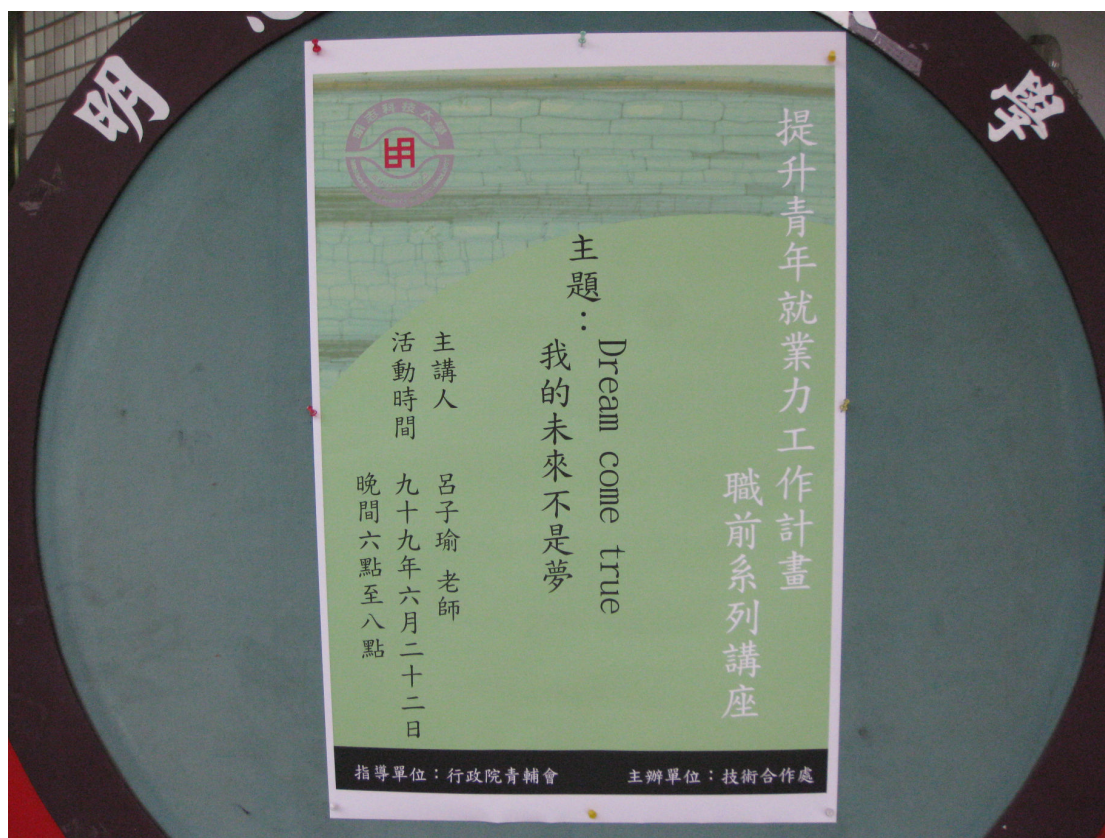 明
學
提升青年就業力工作計畫
職前系列講座
主題：Dream come true
我的未來不是夢
主講人 呂子瑜 老師
活動時間 九十九年六月二十二日
晚間六點至八點
指導單位：行政院青輔會
主辦單位：技術合作處